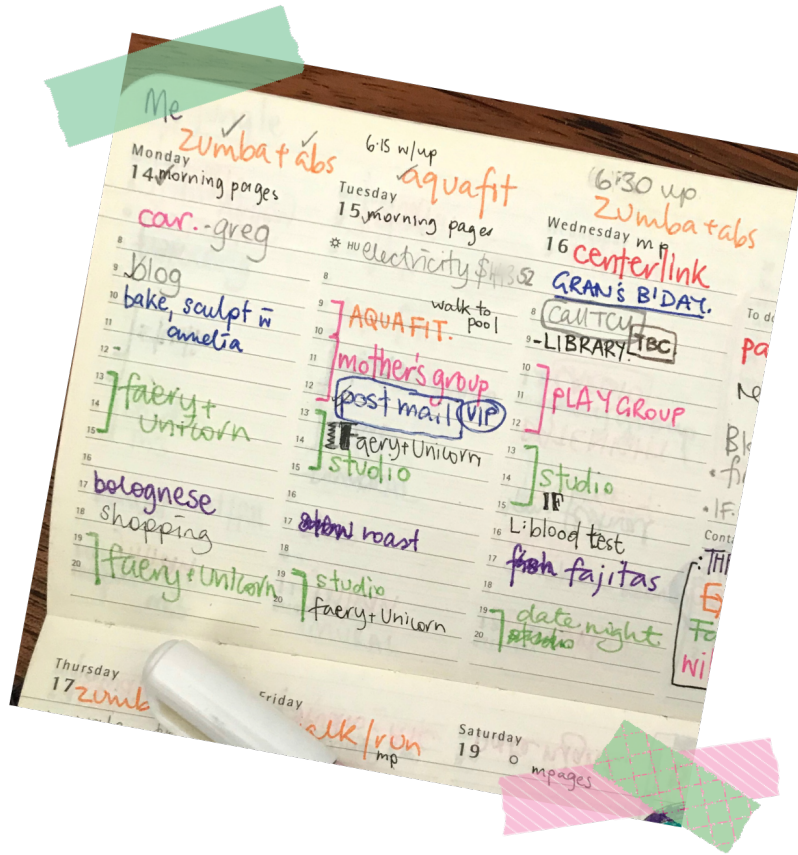 Me
zumba + abs
Monday
14 morning pages
car. - greg
8
9 blog
10 bake, sculpt w̄
11 amelia
12
13 faery +
14 unicorn
15
16
17 bolognese
18 shopping
19
20 faery + unicorn
6.15 w/up
aquafit
Tuesday
15 morning pages
HU electricity $
52
8
walk to
pool
9 AQUAFIT.
10
11 mother's group
12 post mail VIP
13
14 Faery + Unicorn
15 studio
16
17 roast
18
19 studio
20 faery + unicorn
6:30 up
zumba + abs
Wednesday mp
16 centerlink
GRAN'S B'DAY.
8 Call TCU
9 - LIBRARY. TBC
10
11 PLAYGROUP
12
13
14 studio
15 IF
16 L: blood test
17 fajitas
18
19 date night
20 studio
To do
pa
Bk
• IF.
Conta
: THE
Fa
wi
Thursday
17 zumb
Friday
alk/run
mp
Saturday
19
mpages